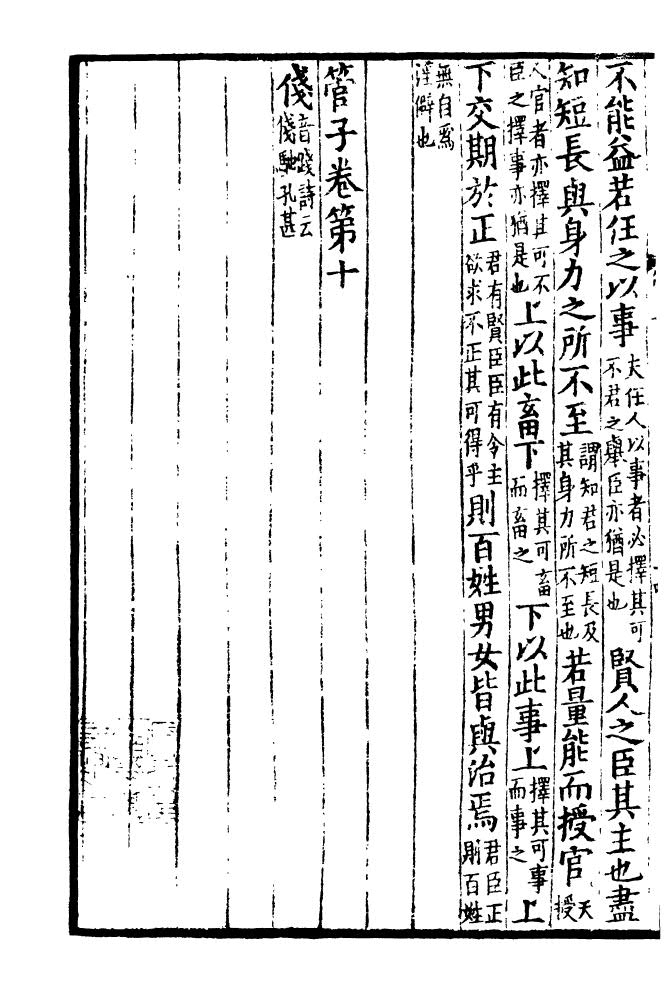 不能益若任之以事夫任人以事者必擇其可不君之舉臣亦猶是也賢人之臣其主也盡
知短長與身力之所不至謂知君之短長及其身力所不至也若量能而授官夫授
人官者亦擇其可不臣之擇事亦猶是也上以此畜下擇其可畜而畜之下以此事上擇其可事而事之上
下交期於正君有賢臣臣有令主欲求不正其可得乎則百姓男女皆與治焉君臣正則百姓
無自爲淫僻也
管子卷第十
俴音踐詩云俴駟孔甚